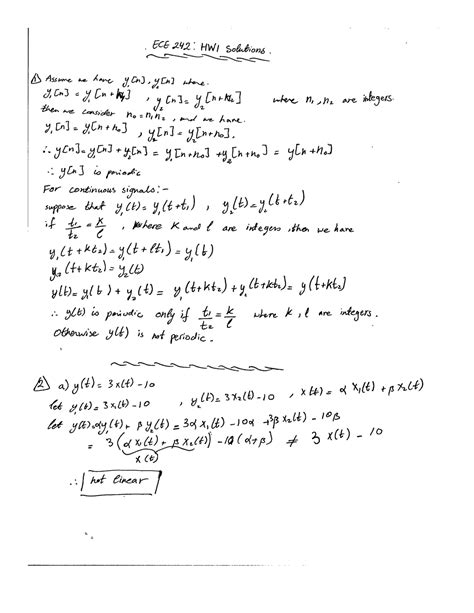 ECE 242: HW1 Solutions.
① Assume we have y₁[n], y₂[n] where.
y₁[n] = y₁[n+n₁] , y₂[n] = y₂[n+n₂] where n₁, n₂ are integers.
then we consider n₀ = n₁n₂ , and we have.
y₁[n] = y₁[n+n₀] , y₂[n] = y₂[n+n₀].
∴ y[n] = y₁[n] + y₂[n] = y₁[n+n₀] + y₂[n+n₀] = y[n+n₀]
∴ y[n] is periodic
For continuous signals:-
suppose that y₁(t) = y₁(t+t₁) , y₂(t) = y₂(t+t₂)
if t₁/t₂ = k/l , where k and l are integers, then we have
y₁(t+kt₂) = y₁(t+lt₁) = y₁(t)
y₂(t+kt₂) = y₂(t)
y(t) = y₁(t) + y₂(t) = y₁(t+kt₂) + y₂(t+kt₂) = y(t+kt₂)
∴ y(t) is periodic only if t₁/t₂ = k/l where k, l are integers.
Otherwise y(t) is not periodic.
② a) y(t) = 3x(t) - 10
let y₁(t) = 3x₁(t) - 10 , y₂(t) = 3x₂(t) - 10 , x(t) = α x₁(t) + β x₂(t)
let y(t) = αy₁(t) + β y₂(t) = 3α x₁(t) - 10α + 3β x₂(t) - 10β
= 3(α x₁(t) + β x₂(t)) - 10(α+β) ≠ 3 x(t) - 10
x(t)
∴ not linear